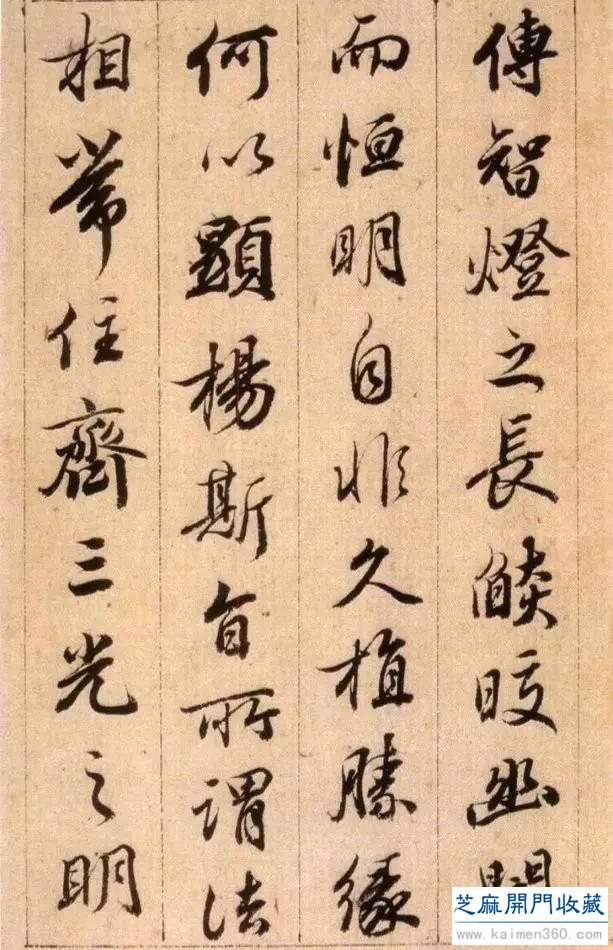 傳智燈之長燄晈幽
而恒明自非久植勝緣
何以顯楊斯旨所謂法
相常住齊三光之明
芝麻開門收藏
www.kaimen360.com